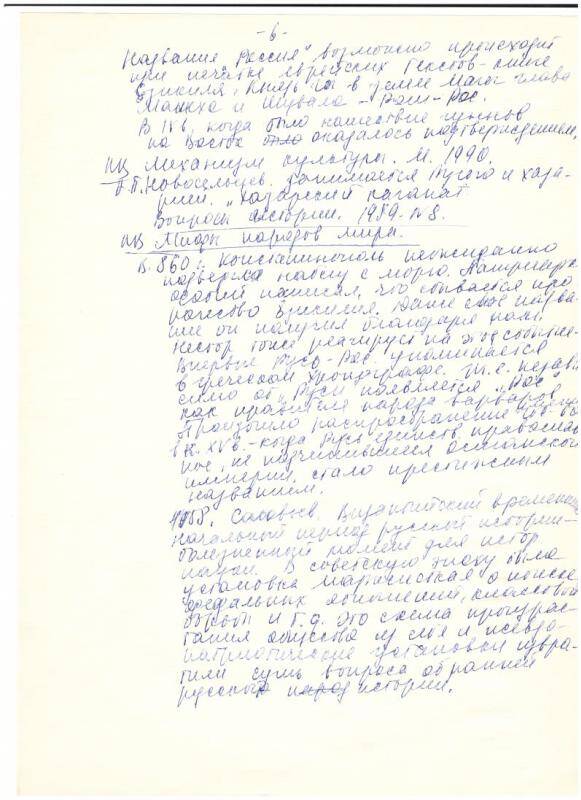 -6-
Название "Россия" возможно происходит
при печатке еврейских текстов
Езикиля. Князь Гог в земле Магог глава
Машха и Фувала - Рош - Рос.
В IV в. когда было нашествие гуннов
на Восток оказалось подтверждением.
Механизм культуры. М. 1990.
А.П. Новосельцев. занимается Русью и Хаза-
рией. "Хазарский каганат
Вопросы истории. 1989 - № 8.
Мифы народов мира.
В. 860 г. Константинополь неожиданно
подвергла набегу с моря. Патриарх
Фотий написал, что сбывается про
рочество Езикиля. Даже свое назва-
ние он получил благодаря нам.
Нестор тоже реагирует на это событие.
Впервые Русь - Рос. упоминается
в греческом Хронографе. т.е. незави
симо от "Руси" появляется "Рос"
как правителя народа варваров
Произошло распространение
в к. XV в. - когда Русь единств. православ
ное, не подчинившееся Османской
империи, стало престижным
названием.
1958. Соловьев. Византийский временник
Начальный период русской истории -
болезненный момент для истор.
науки. В советскую эпоху была
установка марксистская о поиске
феодальных отношений, классовой
борьбы и т.д. Это схема прочитыва-
тания общества из себя и псевдо-
патриотические установки извра-
тили суть вопроса об ранней
русской истории.